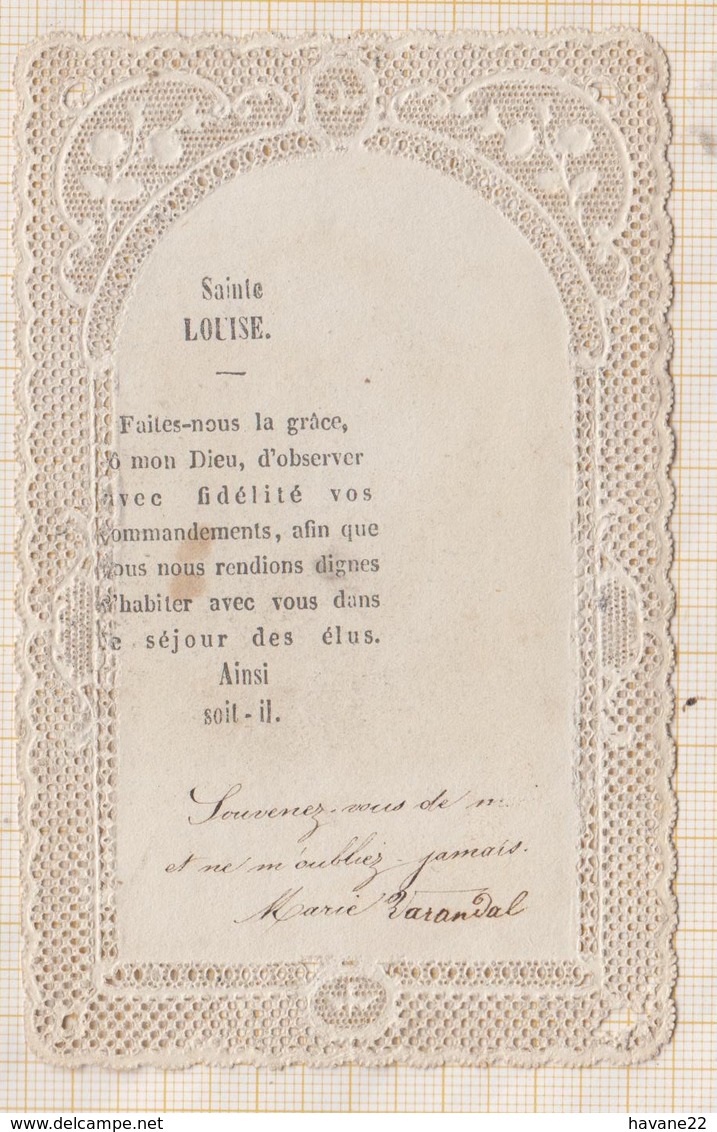 Sainte
LOUISE.
Faites-nous la grâce,
ô mon Dieu, d'observer
avec fidélité vos
commandements, afin que
nous nous rendions dignes
d'habiter avec vous dans
le séjour des élus.
Ainsi
soit-il.
Souvenez-vous de
et ne m'oubliez jamais.
Marie Varandal
havane22